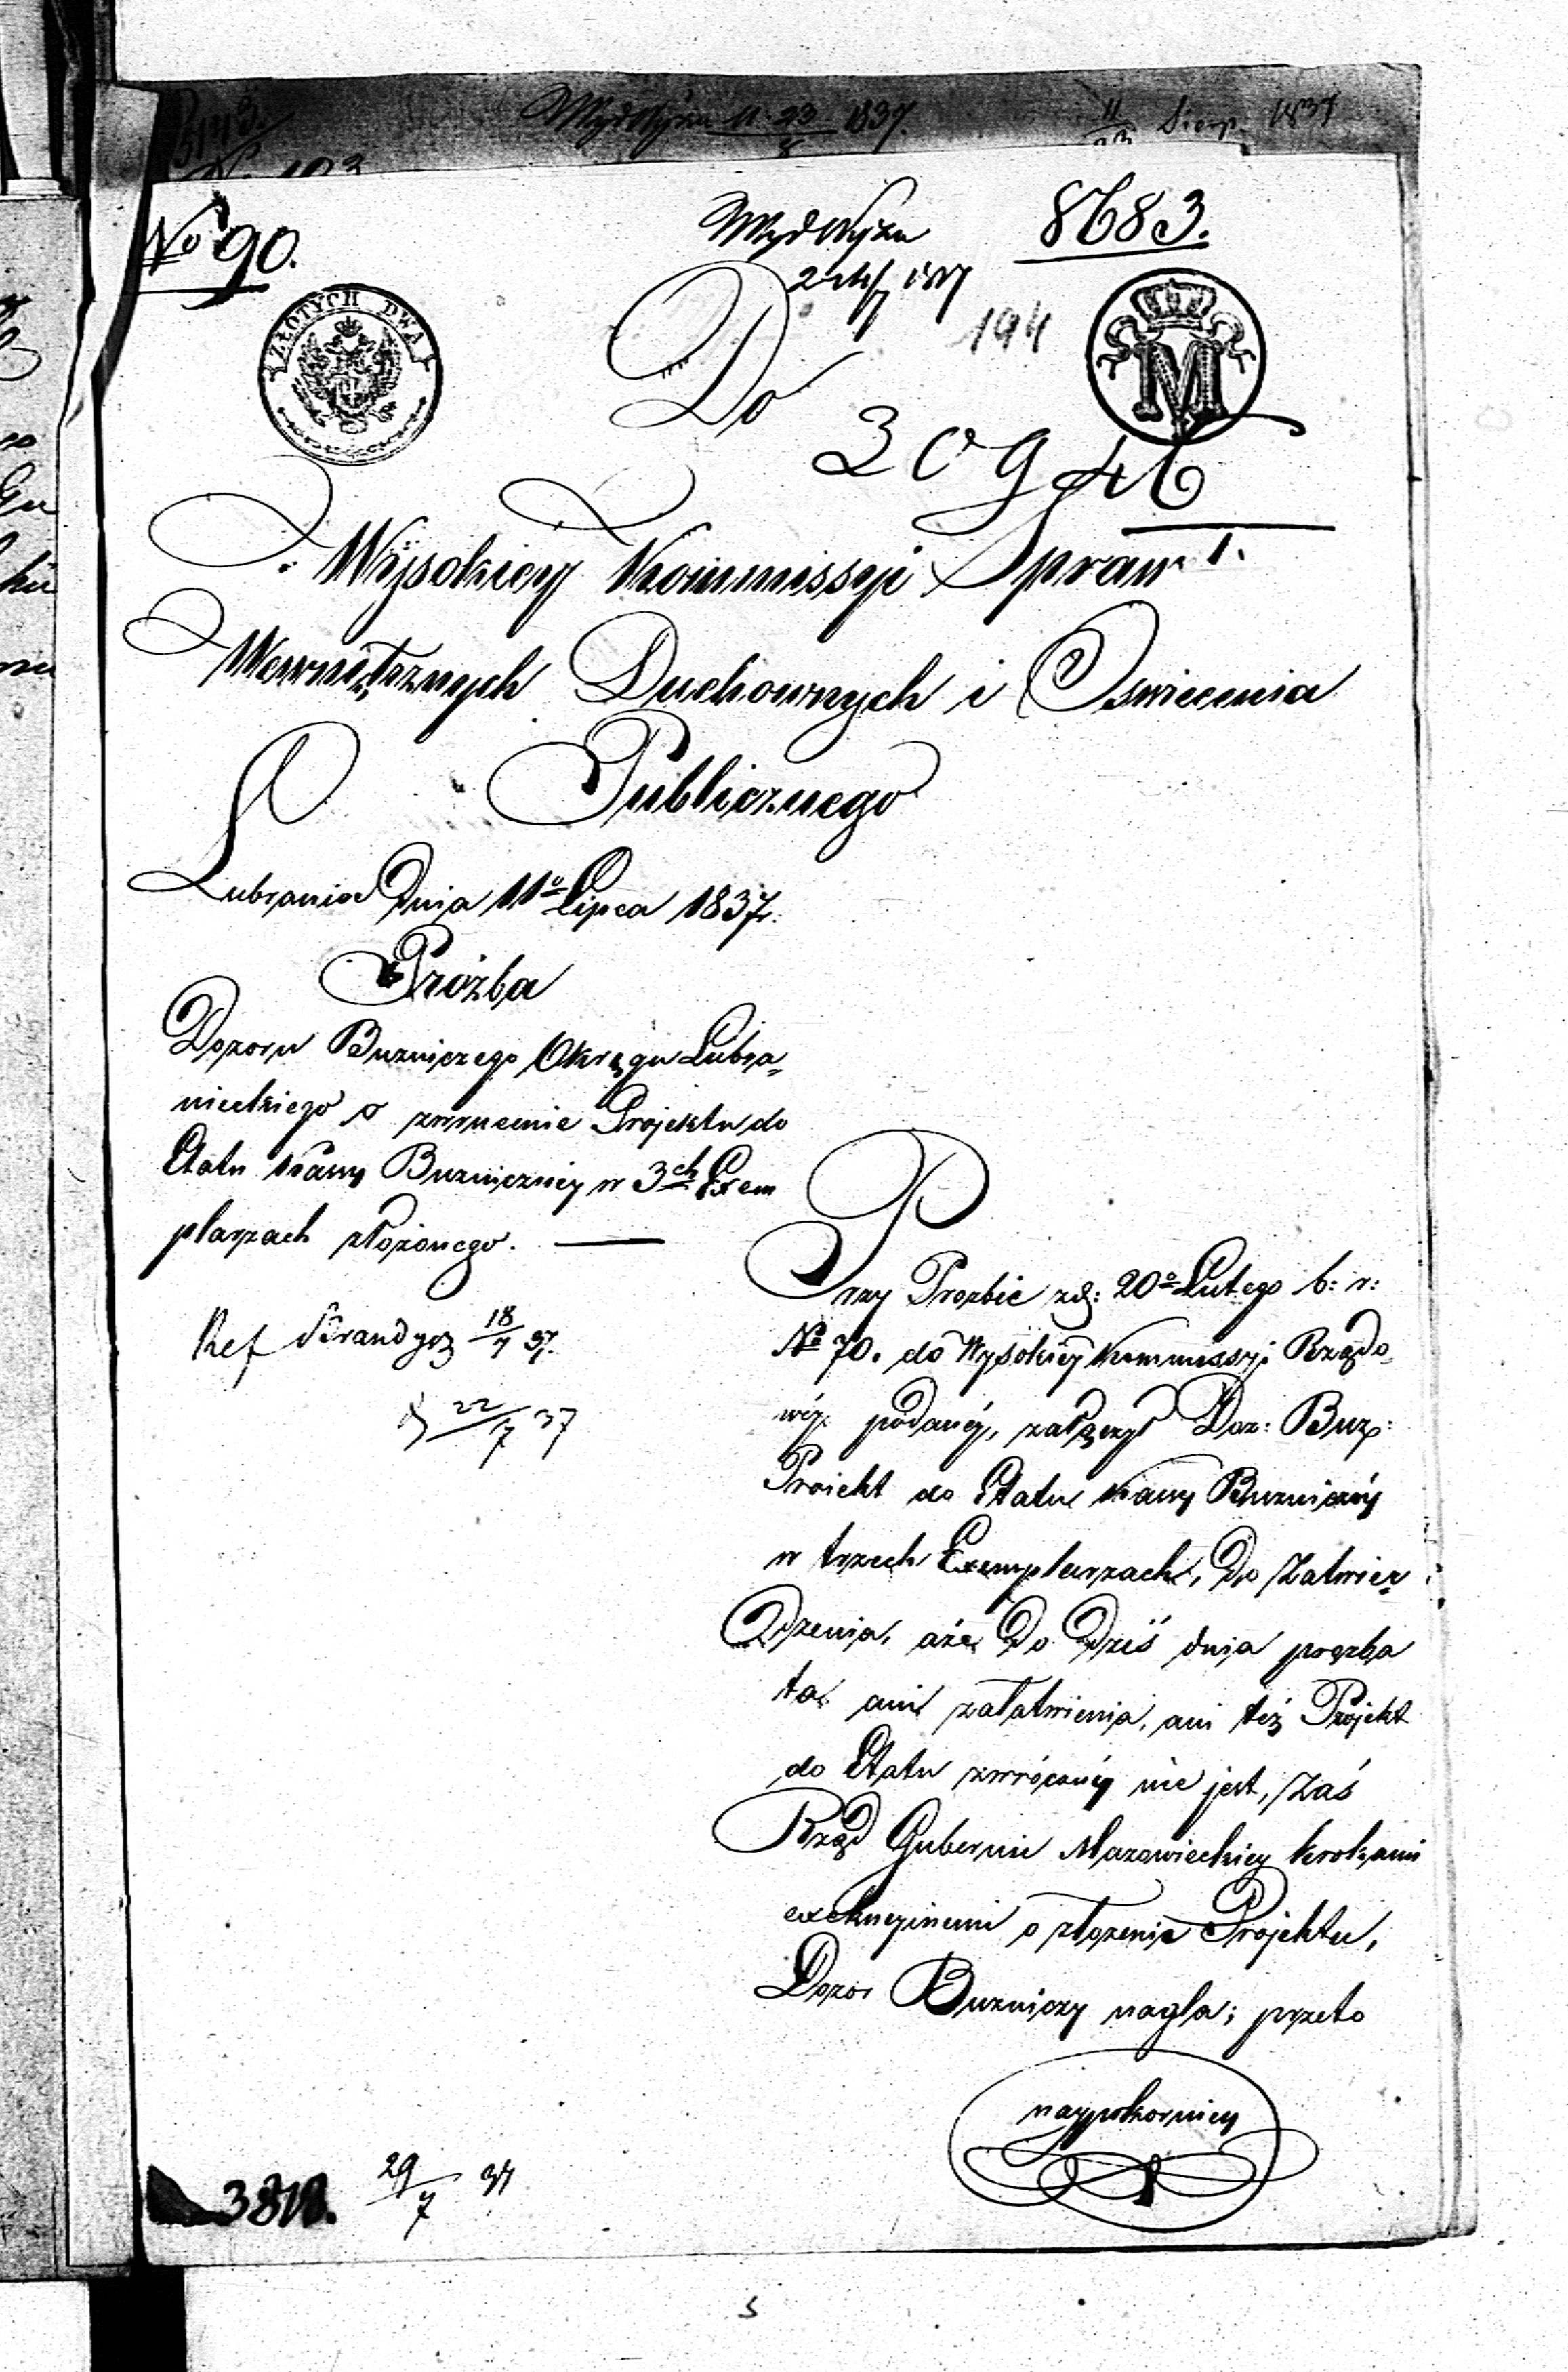 11/23 Sierp. 1837
No 90.
Wyd Wyzn
8683.
ZŁOTYCH DWA
Do
194
M
30946
Wysokiey Kommissyi Spraw
Wewnętrznych Duchownych i Oswiecenia
Publicznego
Lubraniec Dnia 11º Lipca 1837r.
Prózba
Dozoru Buzniczego Okręgu Lubra„
nieckiego o zwrucenie Projektu do
Etatu Kassy Buzniczney w 3ch Exem
plarzach złożonego. —
Ref 18/7 37.
22/7 37
Przy Prozbie zd: 20º Lutego b: r:
No 70. do Wysokiey Kommissyi Rządo„
wéy podanéy, załączył Doz: Buz:
Proiekt do Etatu Kassy Buzniczéy
w trzech Exemplarzach, do Zatwier„
dzenia, aże do dziś dnia prozba
ta ani załatwienia, ani téż Projekt
do Etatu zwróconý nie jest, Zaś
Rząd Gubernii Mazowieckiey krokami
exekucyinemi o złozenie Projektu,
Dozor Buzniczy nagla; przeto
naypokorniey
3818.
29/7 37